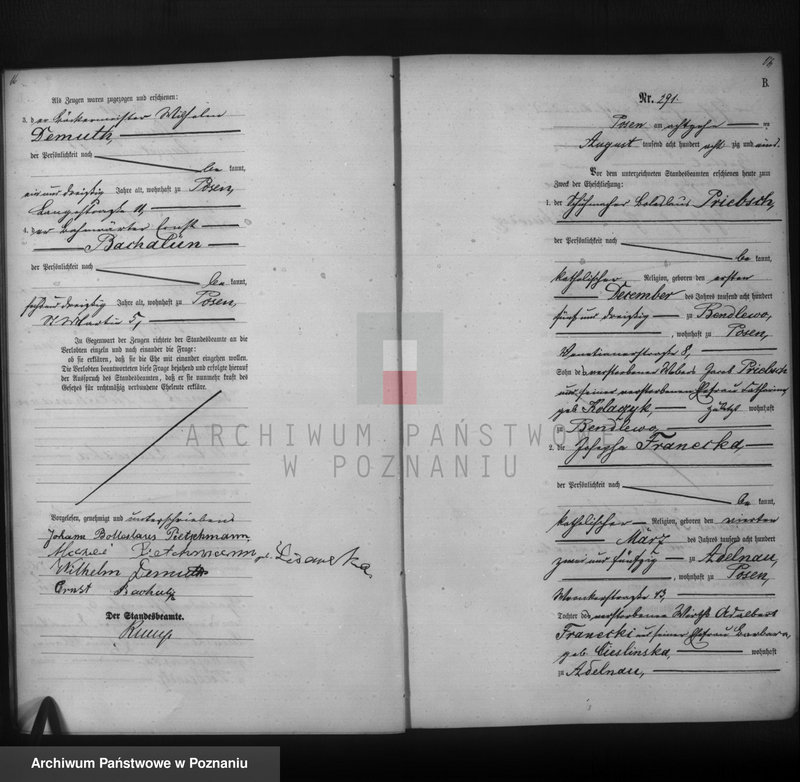 16
Als Zeugen waren zugezogen und erschienen:
3. der Bäckermeister Wilhelm
Demuth,
der Persönlichkeit nach
be kannt,
ein und dreißig Jahre alt, wohnhaft zu Posen,
Langestraße 11,
4. der Ernst
Bachalin
der Persönlichkeit nach
be kannt,
sechs und dreißig Jahre alt, wohnhaft zu Posen,
St Martin 5,
In Gegenwart der Zeugen richtete der Standesbeamte an die
Verlobten einzeln und nach einander die Frage:
ob sie erklären, daß sie die Ehe mit einander eingehen wollen.
Die Verlobten beantworteten diese Frage bejahend und erfolgte hierauf
der Ausspruch des Standesbeamten, daß er sie nunmehr kraft des
Gesetzes für rechtmäßig verbundene Eheleute erkläre.
Vorgelesen, genehmigt und unterschrieben
Johann Pietschmann
Pietschmann
Wilhelm Demuth
Ernst
Der Standesbeamte.
B.
Nr. 291.
Posen am achtzehn ten
August tausend acht hundert acht zig und eins.
Vor dem unterzeichneten Standesbeamten erschienen heute zum
Zweck der Eheschließung:
1. der Schuhmacher Boleslaus Priebsch,
der Persönlichkeit nach
be kannt,
katholischer Religion, geboren den ersten
December des Jahres tausend acht hundert
fünf und dreißig zu Bendlewo,
, wohnhaft zu Posen,
Venetianerstraße 8,
Sohn des verstorbenen Jacob Priebsch
und seiner verstorbenen Ehefrau Catharina
geb Kolazyk, zuletzt wohnhaft
zu Bendlewo,
2. die Josepha Franecka,
der Persönlichkeit nach
be kannt,
katholischer Religion, geboren den vierten
März des Jahres tausend acht hundert
zwei und fünfzig zu Adelnau,
, wohnhaft zu Posen,
Wronkerstraße 13,
Tochter des verstorbenen Wirths Adalbert
Franecki und seiner Ehefrau Barbara,
geb Cieslinska, wohnhaft
zu Adelnau,
ARCHIWUM PAŃSTWOWE
W POZNANIU
Archiwum Państwowe w Poznaniu